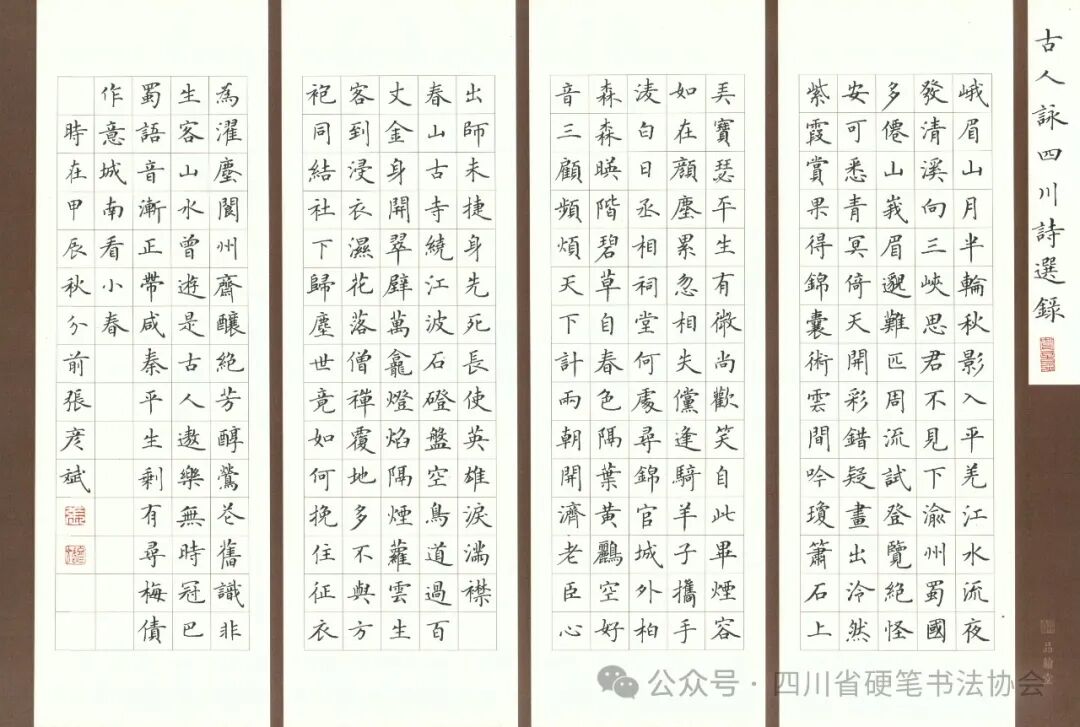 古人詠四川詩選錄
峨眉山月半輪秋影入平羌江水流夜
發清溪向三峽思君不見下渝州蜀國
多僊山峩眉邈難匹周流試登覽絕怪
安可悉青冥倚天開彩錯疑畫出泠然
紫霞賞果得錦囊術雲間吟瓊簫石上
弄寶瑟平生有微尚歡笑自此畢煙容
如在顏塵累忽相失儻逢騎羊子攜手
淩白日丞相祠堂何處尋錦官城外柏
森森暎階碧草自春色隔葉黃鸝空好
音三顧頻煩天下計兩朝開濟老臣心
出師未捷身先死長使英雄淚滿襟
春山古寺繞江波石磴盤空鳥道過百
丈金身開翠壁萬龕燈焰隔煙蘿雲生
客到浸衣濕花落僧禪覆地多不與方
袍同結社下歸塵世竟如何挽住征衣
為濯塵閬州齋釀絕芳醇鶯花舊識非
生客山水曾遊是古人遨樂無時冠巴
蜀語音漸正帶咸秦平生剩有尋梅債
作意城南看小春
時在甲辰秋分前張彥斌
品翰堂
公众号 · 四川省硬笔书法协会